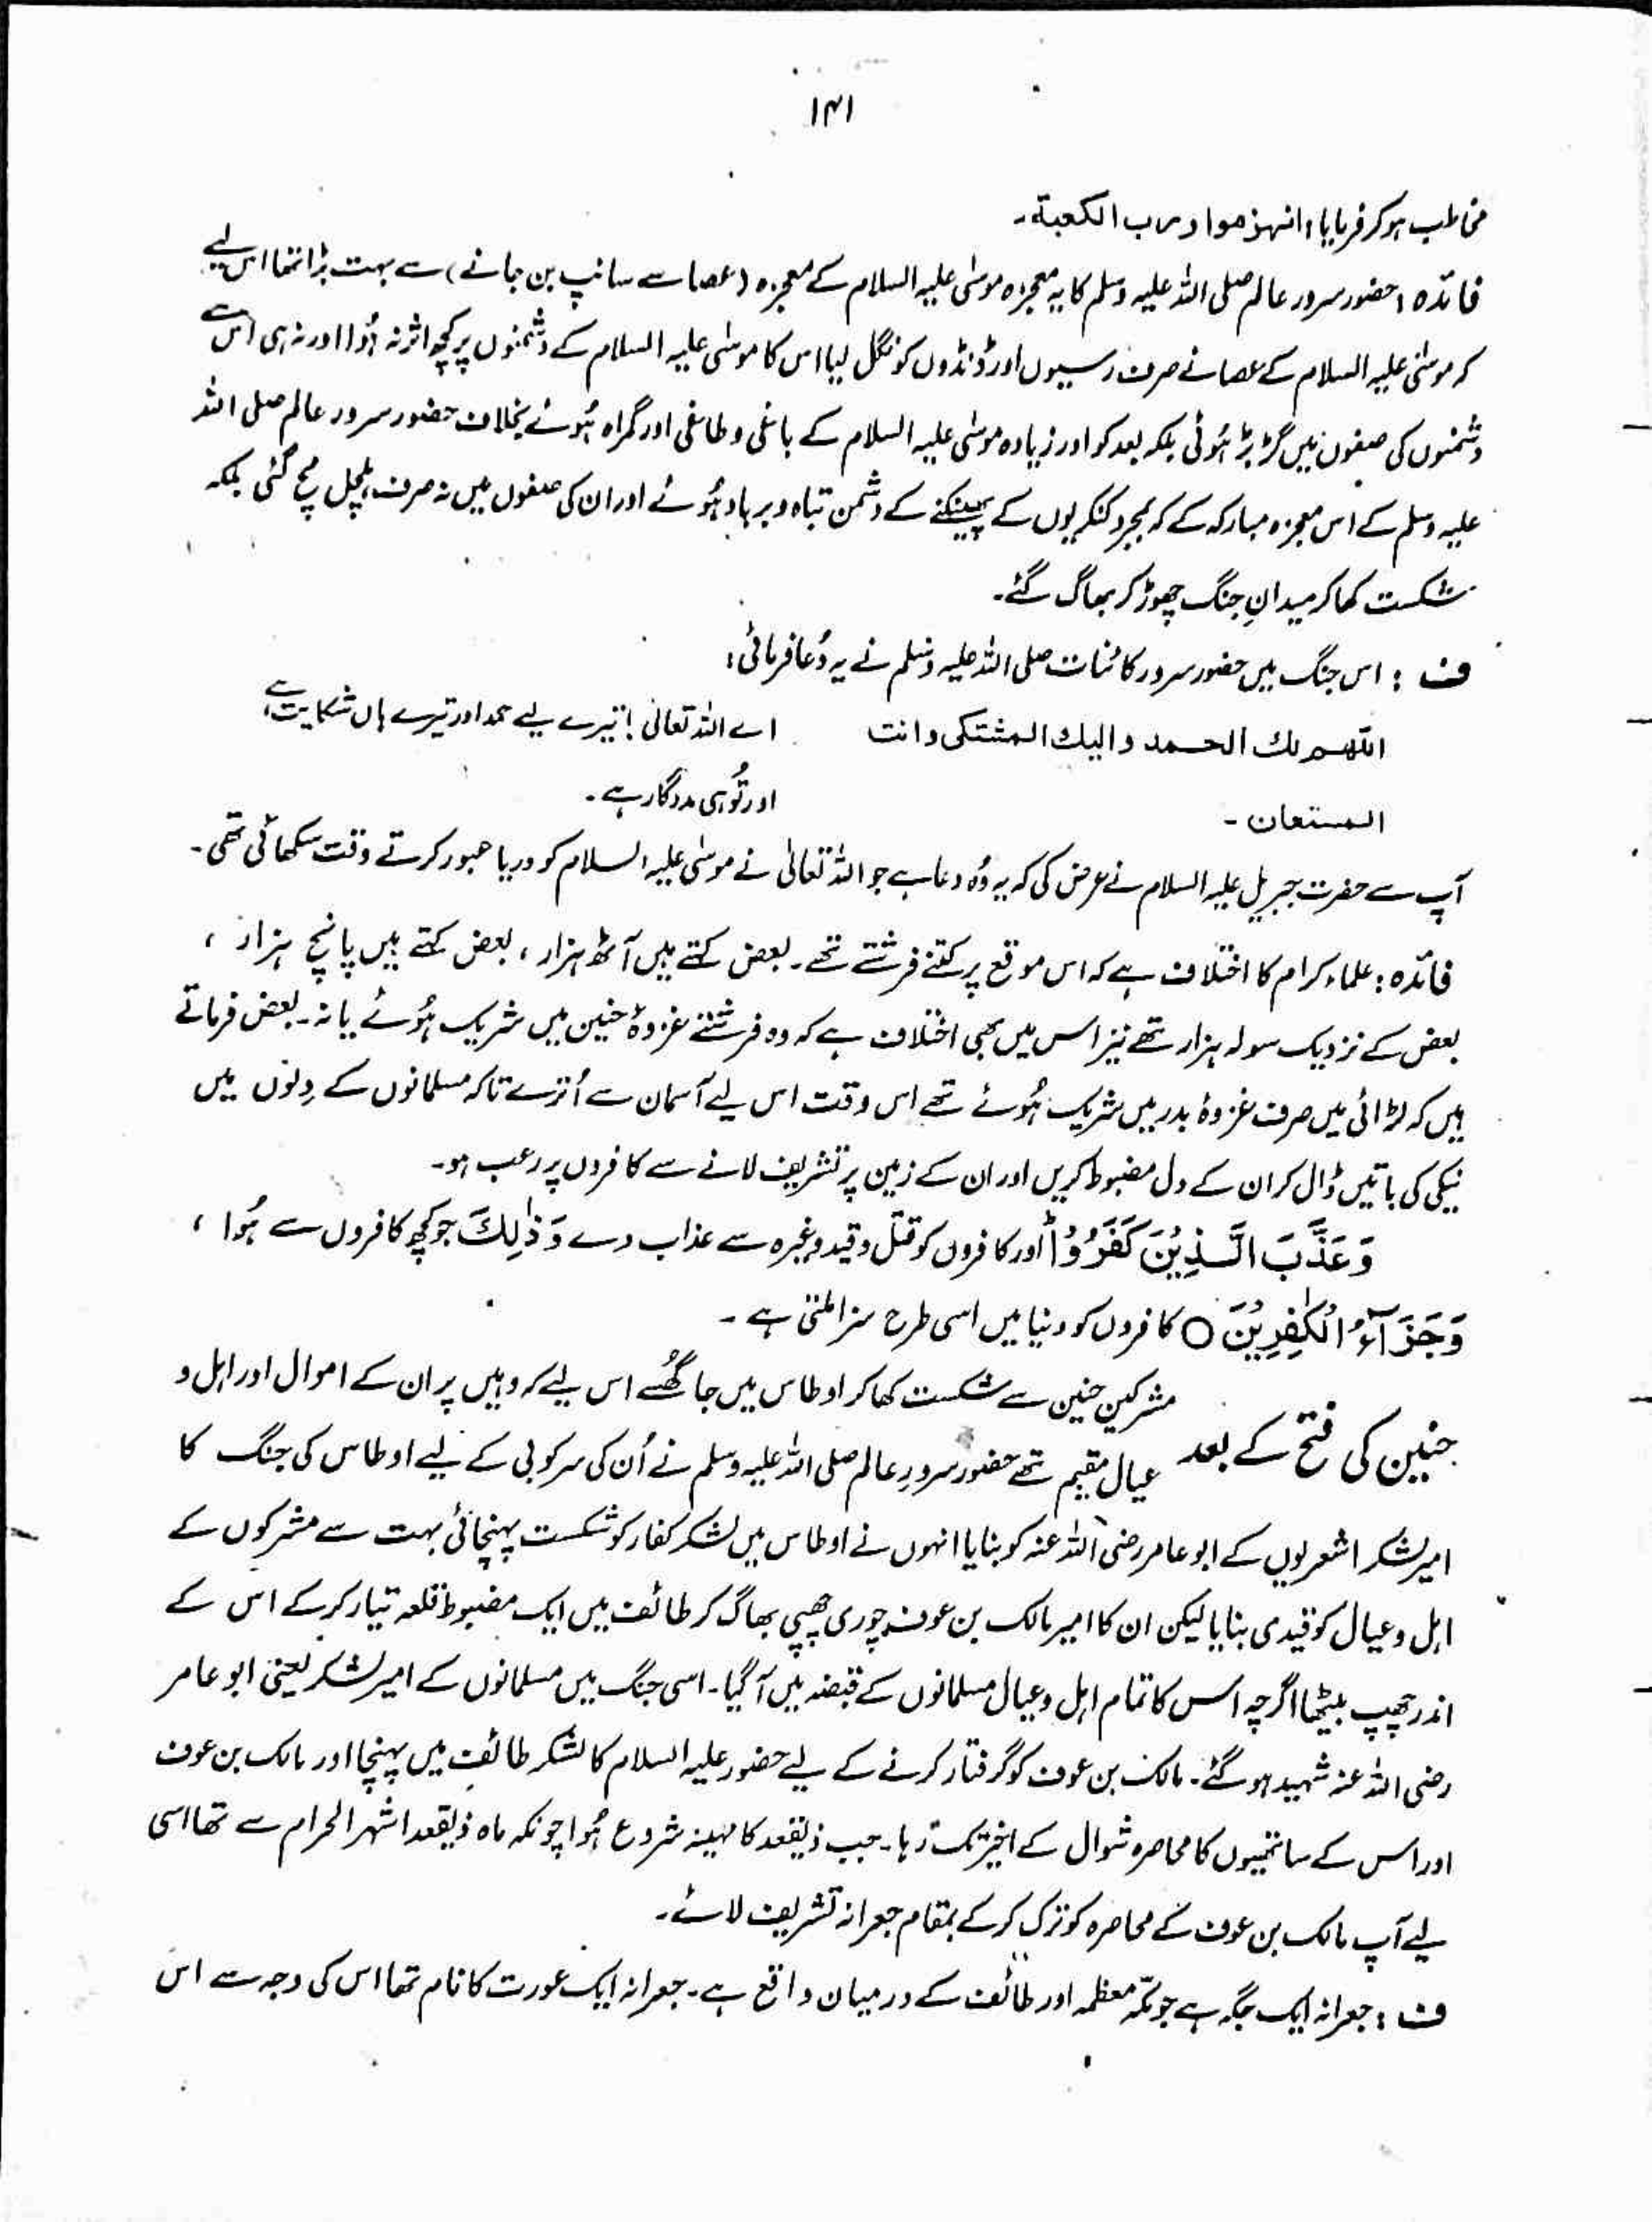 ۱۴۱
مخاطب ہو کر فرمایا: انہزموا ورب الکعبة۔
فائدہ: حضور سرور عالم صلی اللہ علیہ وسلم کا یہ معجزہ موسٰی علیہ السلام کے معجزہ (عصا سے سانپ بن جانے) سے بہت بڑا تھا اس لیے
کہ موسٰی علیہ السلام کے عصا نے صرف رسیوں اور ڈنڈوں کو نگل لیا اس کا موسٰی علیہ السلام کے دشمنوں پر کچھ اثر نہ ہُوا اور نہ ہی اس سے
دشمنوں کی صفوں میں گڑبڑ ہُوئی بلکہ بعد کو اور زیادہ موسٰی علیہ السلام کے باغی و طاغی اور گمراہ ہُوئے بخلاف حضور سرور عالم صلی اللہ
علیہ وسلم کے اس معجزہ مبارکہ کے کہ بمجرد کنکریوں کے پھینکنے کے دشمن تباہ و برباد ہُوئے اور ان کی صفوں میں نہ صرف ہلچل مچ گئی بلکہ
شکست کھا کر میدانِ جنگ چھوڑ کر بھاگ گئے۔
ف: اس جنگ میں حضور سرور کائنات صلی اللہ علیہ وسلم نے یہ دُعا فرمائی:
اللّٰھم لك الحمد والیك المشتکی وانت
المستعان۔
اے اللہ تعالٰی! تیرے لیے حمد اور تیرے ہاں شکایت ہے
اور تُو ہی مددگار ہے۔
آپ سے حضرت جبریل علیہ السلام نے عرض کی کہ یہ وُہ دعا ہے جو اللہ تعالٰی نے موسٰی علیہ السلام کو دریا عبور کرتے وقت سکھائی تھی۔
فائدہ: علماء کرام کا اختلاف ہے کہ اس موقع پر کتنے فرشتے تھے۔ بعض کہتے ہیں آٹھ ہزار، بعض کہتے ہیں پانچ ہزار،
بعض کے نزدیک سولہ ہزار تھے نیز اس میں بھی اختلاف ہے کہ وہ فرشتے غزوۂ حنین میں شریک ہُوئے یا نہ۔ بعض فرماتے
ہیں کہ لڑائی میں صرف غزوۂ بدر میں شریک ہُوئے تھے اس وقت اس لیے آسمان سے اُترے تاکہ مسلمانوں کے دِلوں میں
نیکی کی باتیں ڈال کر ان کے دل مضبوط کریں اور ان کے زمین پر تشریف لانے سے کافروں پر رعب ہو۔
وَعَذَّبَ الَّذِیْنَ کَفَرُوْا اور کافروں کو قتل و قید وغیرہ سے عذاب دے وَذٰلِكَ جو کچھ کافروں سے ہُوا،
وَجَزَآءُ الْکٰفِرِیْنَ ○ کافروں کو دنیا میں اسی طرح سزا ملتی ہے۔
حنین کی فتح کے بعد مشرکین حنین سے شکست کھا کر اوطاس میں جا گھُسے اس لیے کہ وہیں پر ان کے اموال اور اہل و
عیال مقیم تھے حضور سرورِ عالم صلی اللہ علیہ وسلم نے اُن کی سرکوبی کے لیے اوطاس کی جنگ کا
امیر لشکر اشعریوں کے ابو عامر رضی اللہ عنہ کو بنایا انہوں نے اوطاس میں لشکر کفار کو شکست پہنچائی بہت سے مشرکوں کے
اہل و عیال کو قیدی بنایا لیکن ان کا امیر مالک بن عوف چوری چھپی بھاگ کر طائف میں ایک مضبوط قلعہ تیار کر کے اس کے
اندر چھپ بیٹھا اگرچہ اس کا تمام اہل و عیال مسلمانوں کے قبضہ میں آ گیا۔ اسی جنگ میں مسلمانوں کے امیر لشکر یعنی ابو عامر
رضی اللہ عنہ شہید ہو گئے۔ مالک بن عوف کو گرفتار کرنے کے لیے حضور علیہ السلام کا لشکر طائف میں پہنچا اور مالک بن عوف
اور اس کے ساتھیوں کا محاصرہ شوال کے اخیر تک رہا۔ جب ذیقعد کا مہینہ شروع ہُوا چونکہ ماہ ذیقعد اشہر الحرام سے تھا اسی
لیے آپ مالک بن عوف کے محاصرہ کو ترک کر کے بمقام جعرانہ تشریف لائے۔
ف: جعرانہ ایک جگہ ہے جو مکّہ معظمہ اور طائف کے درمیان واقع ہے۔ جعرانہ ایک عورت کا نام تھا اس کی وجہ سے اس